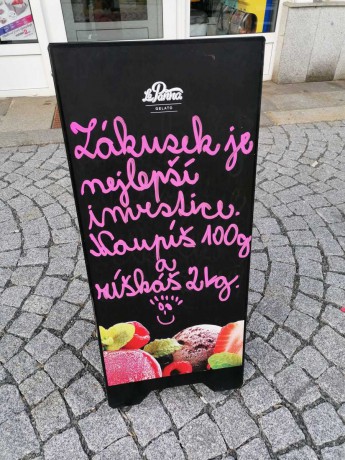 La Panna
GELATO
Zákusek je
nejlepší
investice.
Koupíš 100g
a
získáš 2kg.